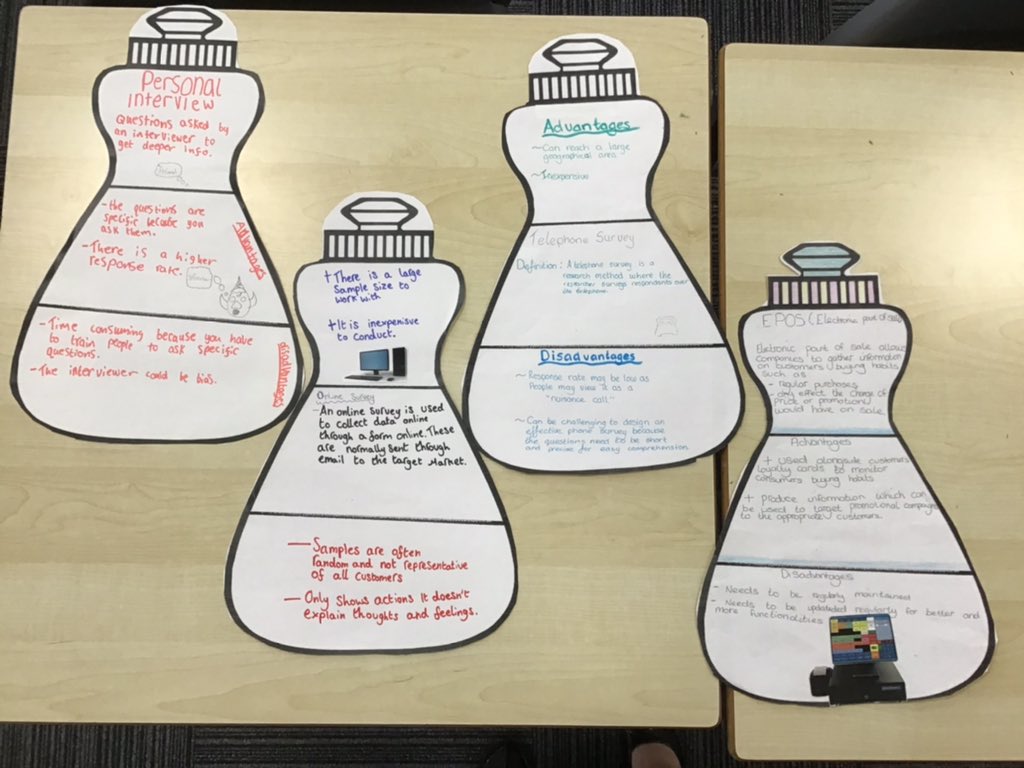 Personal
interview
Questions asked by
an interviewer to
get deeper info.
- the questions are
specific because you
ask them.
- There is a higher
response rate.
Advantages
- Time consuming because you have
to train people to ask specific
questions.
- The interviewer could be bias.
disadvantages
+ There is a large
Sample size to
work with
+ It is inexpensive
to conduct.
Online Survey
- An online survey is used
to collect data online
through a form online. These
are normally sent through
email to the target market.
- Samples are often
random and not representative
of all customers
- Only shows actions it doesn't
explain thoughts and feelings.
Advantages
~ Can reach a large
geographical area
~ Inexpensive
Telephone Survey
Definition: A telephone survey is a
research method where the
researcher surveys respondants over
the telephone.
Disadvantages
~ Response rate may be low as
People may view it as a
"nuisance call"
~ Can be challenging to design an
effective phone survey because
the questions need to be short
and precise for easy comprehension.
EPOS (Electronic point of sale)
Electronic point of sale allows
companies to gather information
on customers buying habits
such as
- regular purchases
- any effect the change of
Price or promotion
would have on sale
Advantages
+ Used alongside customers
loyalty cards to monitor
consumers buying habits
+ Produce information which can
be used to target promotional campaigns
to the appropriate customers.
Disadvantages
- Needs to be regularly maintained
- Needs to be updated regularly for better and
more functionalities